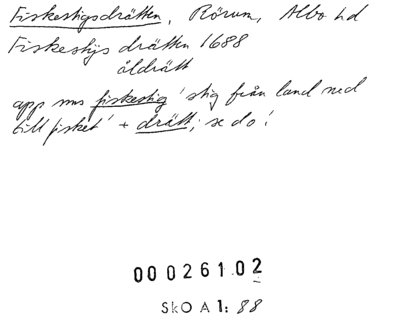 Fiskestigsdrätten, Rörum, Albo hd
Fiskestijs drätten 1688
åldrätt
app ms fiskestig 'stig från land ned
till fisket' + drätt; se do!
00026102
SkO A 1: 88